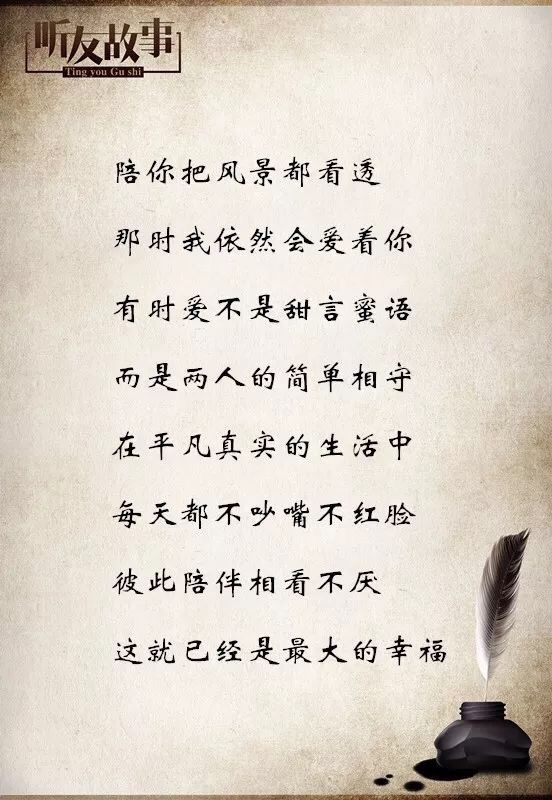 听友故事
Ting you Gu shi
陪你把风景都看透
那时我依然会爱着你
有时爱不是甜言蜜语
而是两人的简单相守
在平凡真实的生活中
每天都不吵嘴不红脸
彼此陪伴相看不厌
这就已经是最大的幸福